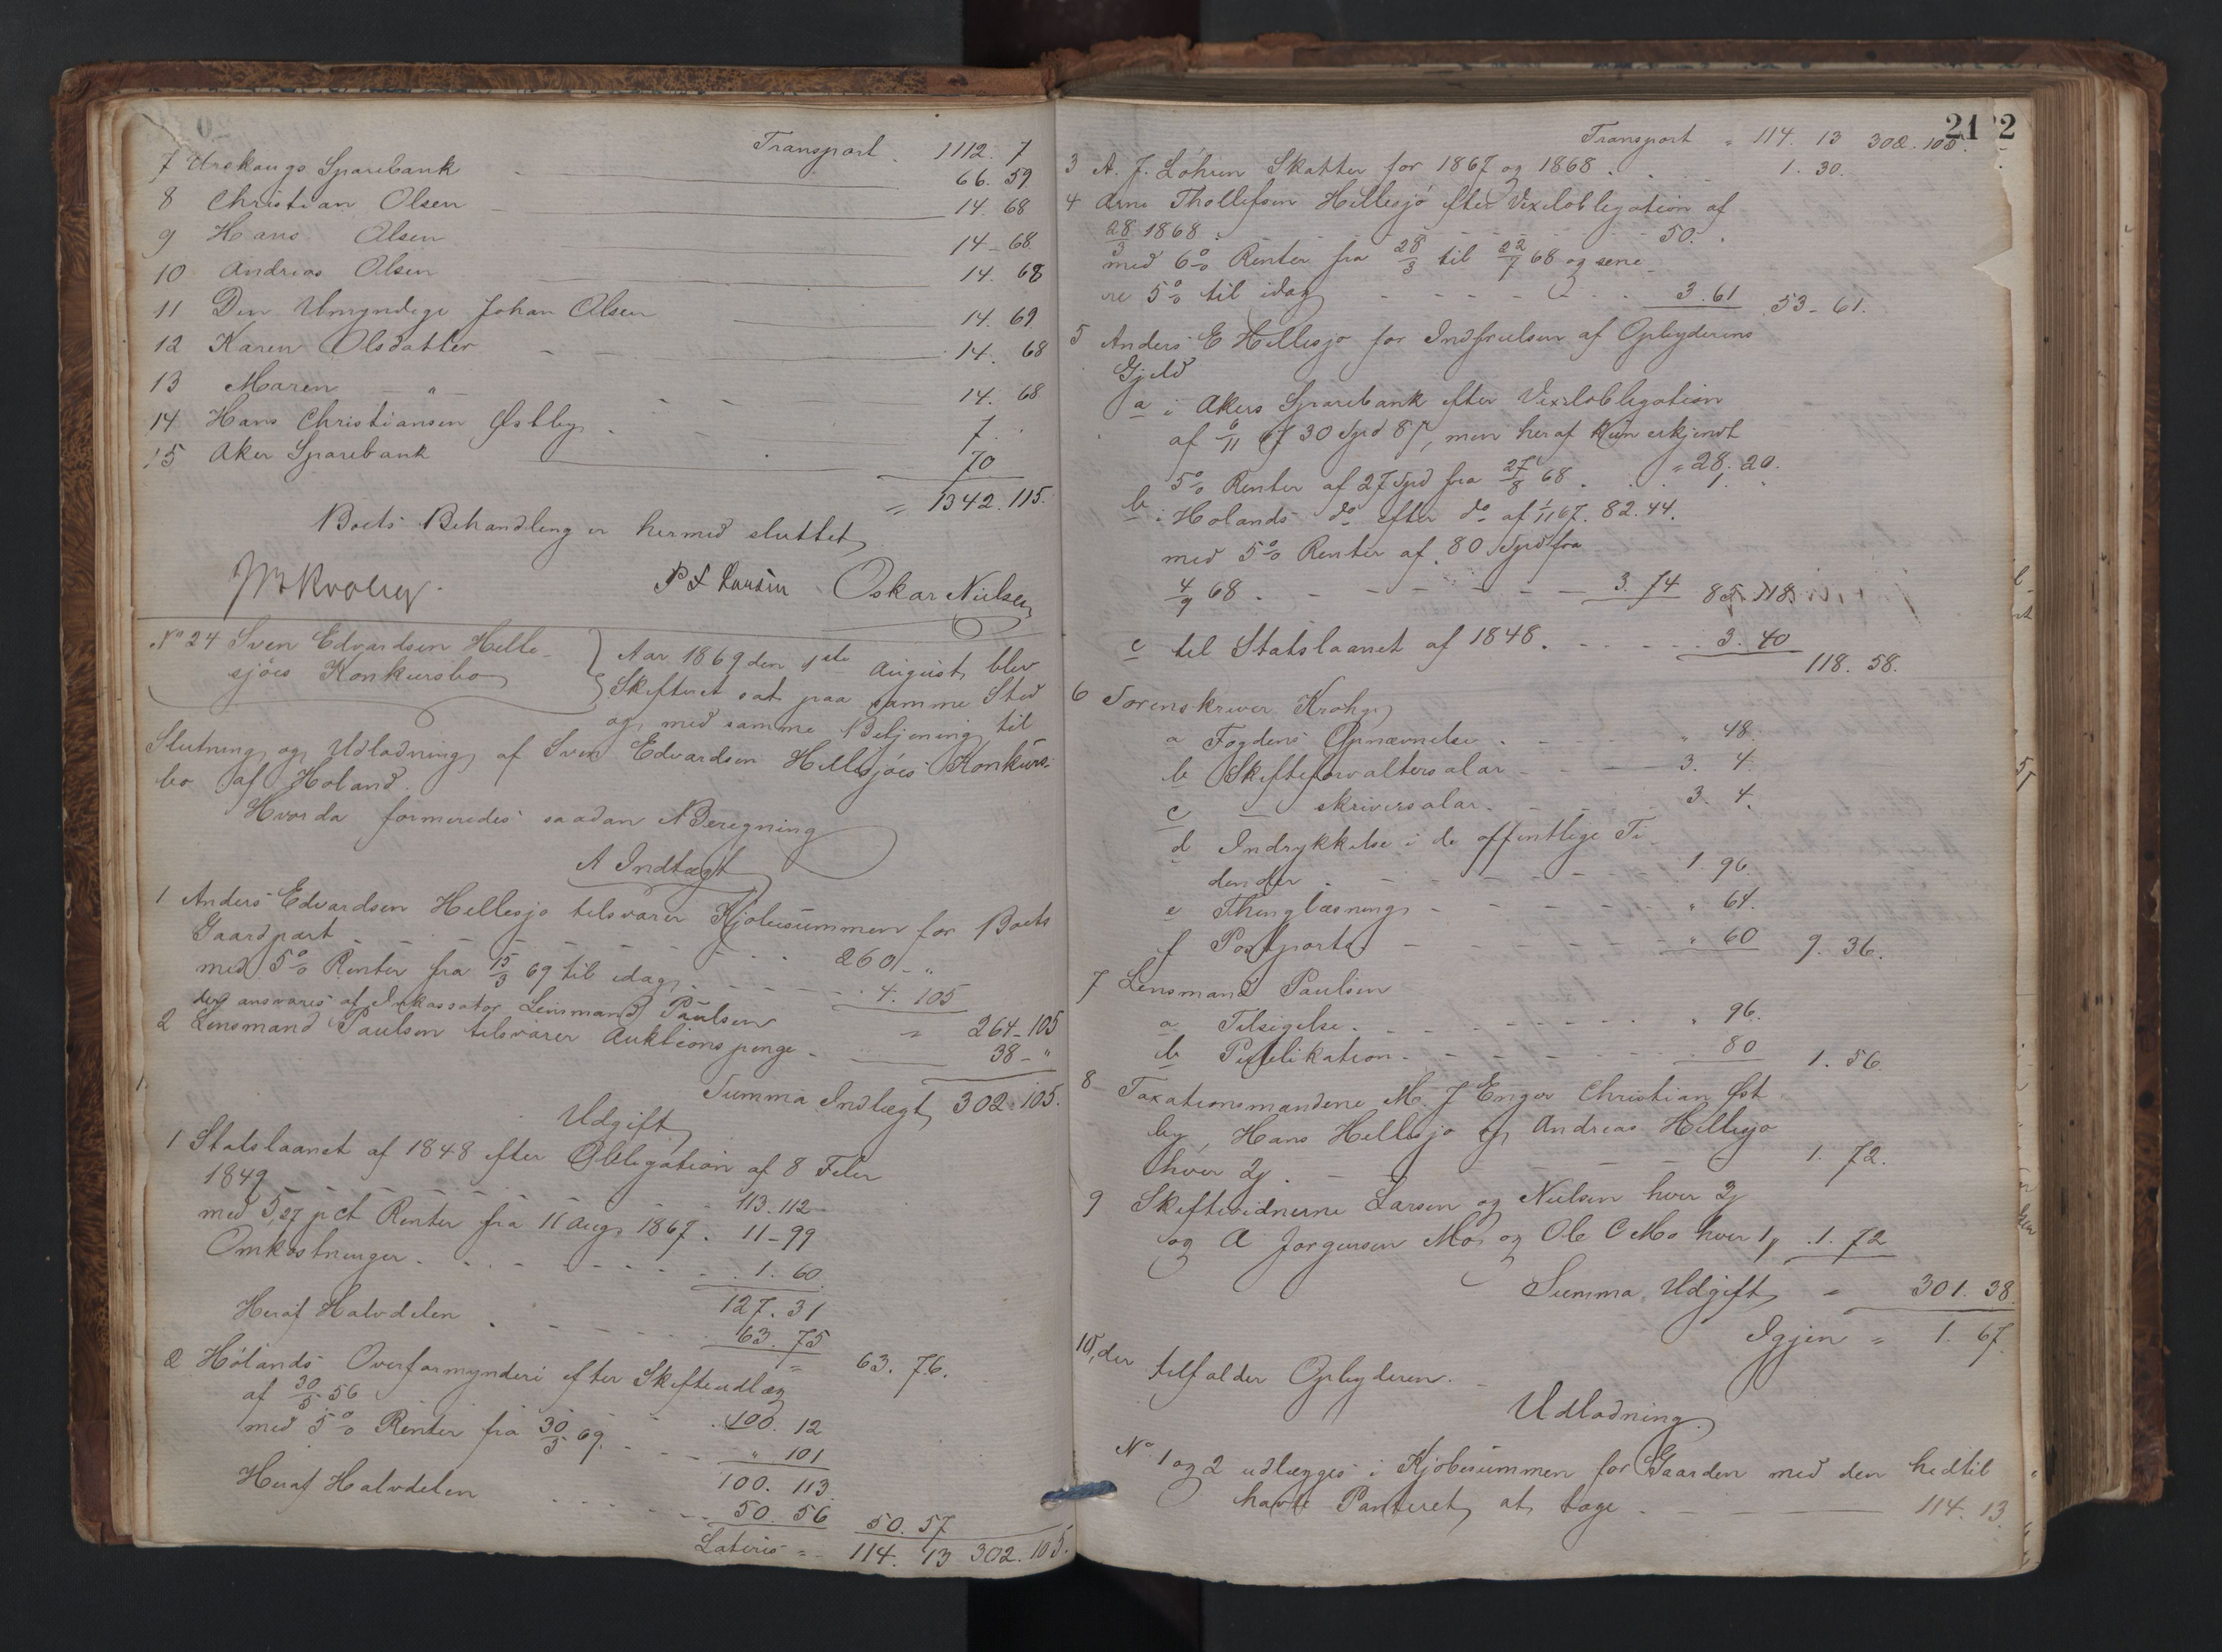 Transport . 1112. 7
7 Urskougs Sparebank 66. 59
8 Christian Olsen 14. 68
9 Hans Olsen 14 - 68
10 Andreas Olsen 14. 68
11 Den Umyndige Johan Olsen 14. 69
12 Karen Olsdatter 14. 68
13 Maren — " — 14. 68
14 Hans Christiansen Østby . 7. .
15 Aker Sparebank 70
= 1342. 115.
Boets Behandling er hermed sluttet
Krohg. P L Larsen Oskar Nielsen
No 24 Sven Edvardsen Helle-
sjöes Konkursbo
Aar 1869 den 1ste August, blev
Skifteret sat paa samme Sted
og med samme Betjening til
Slutning og Udlodning af Sven Edvardsen Hellesjöes Konkurs-
bo af Höland.
Hvorda formeredes saadan Beregning
A Indtægt
1 Anders Edvardsen Hellesjo tilsvarer Kjøbesummen for Boets
Gaardpart - - - - 260 - "
med 5% Renter fra 15/3 69 til idag - - - 4. 105
der ansvares af Inkassator Lensmand Paulsen = 264 - 105
2 Lensmand Paulsen tilsvarer Auktionspenge - 38 - "
Summa Indtægt 302. 105.
Udgift
1 Statslaanet af 1848 efter Obligation af 8 Febr
1849 - - - - 113. 112 -
med 5,27 pct Renter fra 11 Aug 1867. 11 - 99
Omkostninger . - - - - 1. 60.
127. 31
Heraf Halvdelen . - - - - 63. 75
= 63. 76.
2 Hölands Overformynderi efter Skifteudlæg
af 30/5 56 100. 12
med 5% Renter fra 30/5 69. - - " 101
100. 113.
Heraf Halvdelen - - - 50. 56 50. 57
Lateris = 114. 13 302. 105.
21 2
Transport = 114. 13 302. 105.
3 A. J. Löhren Skatter for 1867 og 1868 . . 1. 30.
4 Arne Thollefsen Hellesjö efter Vexelobligation af
28/3 1868 . - - - - 50. .
med 6% Renter fra 28/3 til 22/7 68 og sene-
re 5% til idag - - - - 3. 61 53 - 61.
5 Anders E Hellesjo for Indfrielsen af Opbyderens
Gjeld
a i Akers Sparebank efter Vexelobligation
af 6/11 67 30 Spd 87, men heraf kun erkjendt = 28. 20.
5% Renter af 27 Spd fra 27/8 68 . . 1. "
b i Hölands do efter do af 1/11 67. 82. 44.
med 5% Renter af 80 Spd fra
4/9 68 . - - - - 3. 74 85. 118.
c til Statslaanet af 1848. - - - 3. 40
118. 58.
6 Sorenskriver Krohg
a Fogdens Opnævnelse . - - " 48.
b Skifteforvaltersalar - - 3. 4.
c — skriversalar. - - 3. 4.
d Indrykkelse i de offentlige Ti-
dender . - - - - 1. 96
e Thinglæsning - - - - " 64.
f Postporto - - - - " 60 9. 36.
7 Lensmand Paulsen
a Tilsigelse . - - - - " 96.
b Publikation . - - - - 80 1. 56.
8 Taxationsmændene M. J Enger Christian Øst-
by, Hans Hellesjo og Andreas Hellesjo
hver 2/ . - - - - 1. 72.
9 Skiftevidnerne Larsen og Nielsen hver 2/
og A Jorgensen Mo og Ole C Mo hver 1/ . 1. 72
Summa Udgift = 301. 38
Igjen = 1. 67.
10, der tilfalder Opbyderen.
Udlodning.
No 1 og 2 udlægges i Kjøbesummen for Gaarden med den hedtil
havte Panteret, at tage - - - 114. 13.